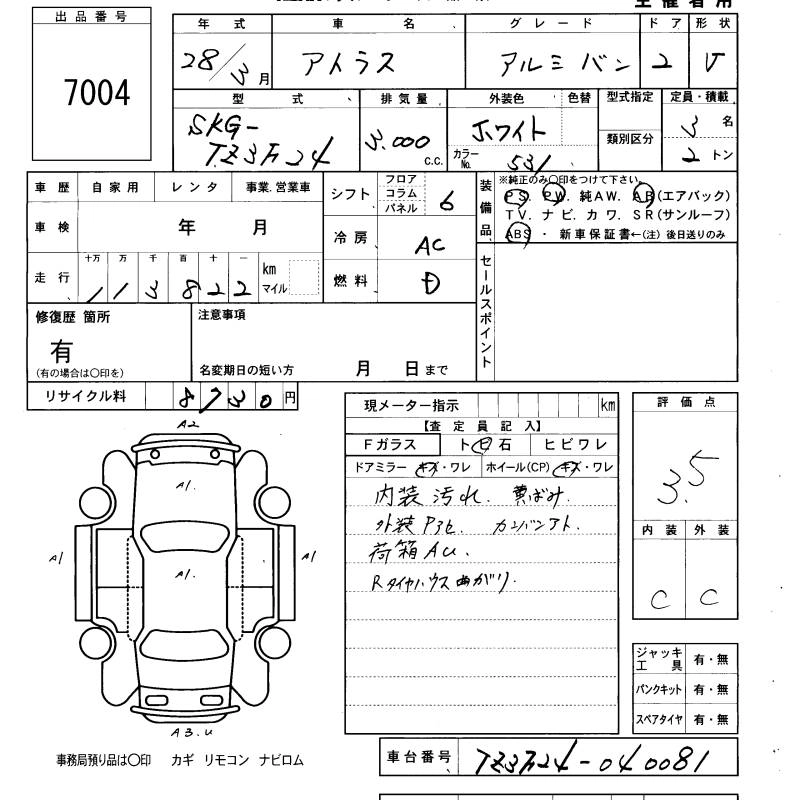 主催者用
出品番号
7004
年式 車名 グレード ドア 形状
28/3月 アトラス アルミバン 2 V
型式 排気量 外装色 色替 型式指定 定員・積載
SKG-TZ3F24 3.000 c.c. ホワイト 類別区分 3名
カラーNo. 531 2トン
車歴 自家用 レンタ 事業.営業車 シフト フロア コラム パネル 6
装備品 ※純正のみ○印をつけて下さい。
PS. PW. 純AW. AB(エアバック)
TV. ナビ. カワ. SR(サンルーフ)
ABS ・ 新車保証書←(注) 後日送りのみ
車検 年 月 冷房 AC
走行 十万 万 千 百 十 一
113822 km マイル 燃料 D
セールスポイント
修復歴 箇所 注意事項
有
(有の場合は○印を) 名変期日の短い方 月 日まで
リサイクル料 8730円
現メーター指示 km
【査定員記入】
Fガラス ト日石 ヒビワレ
ドアミラー キズ・ワレ ホイール(CP) キズ・ワレ
内装汚れ. 黄ばみ.
外装Pヨセ. カンバンアト.
荷箱AU.
Rタイヤハウス曲がり.
評価点
3.5
内装 外装
C C
ジャッキ工具 有・無
パンクキット 有・無
スペアタイヤ 有・無
A2
A1.
A1
A1.
A1
A3.U
事務局預り品は○印 カギ リモコン ナビロム
車台番号 TZ3F24-040081